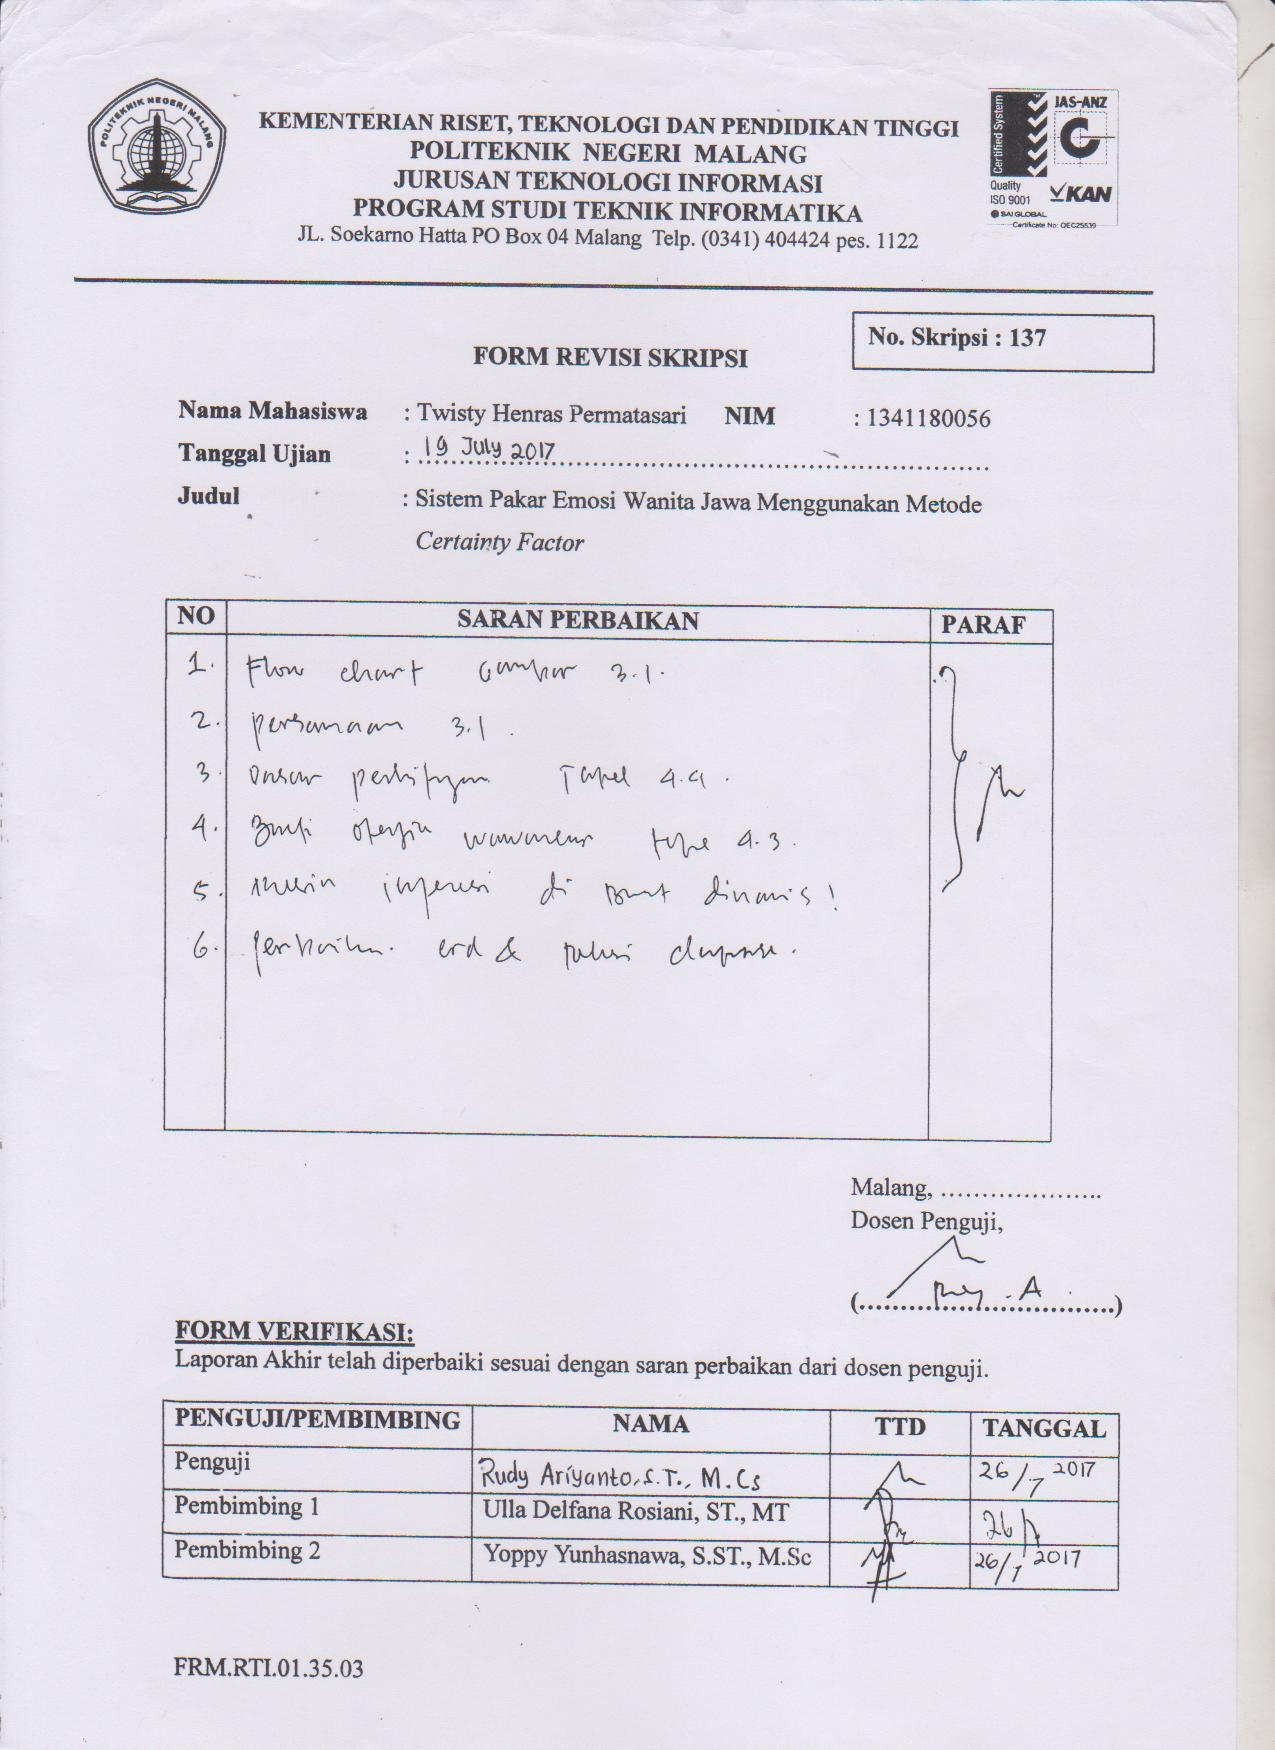 POLITEKNIK NEGERI MALANG
KEMENTERIAN RISET, TEKNOLOGI DAN PENDIDIKAN TINGGI
POLITEKNIK NEGERI MALANG
JURUSAN TEKNOLOGI INFORMASI
PROGRAM STUDI TEKNIK INFORMATIKA
JL. Soekarno Hatta PO Box 04 Malang Telp. (0341) 404424 pes. 1122
Certified System
JAS-ANZ
Quality
ISO 9001
KAN
SAI GLOBAL
Certificate No: QEC25539
No. Skripsi : 137
FORM REVISI SKRIPSI
Nama Mahasiswa : Twisty Henras Permatasari NIM : 1341180056
Tanggal Ujian : 19 July 2017
Judul : Sistem Pakar Emosi Wanita Jawa Menggunakan Metode
Certainty Factor
NO SARAN PERBAIKAN PARAF
1. Flow chart Gambar 3.1.
2. persamaan 3.1.
3. Dasar
4. 4.3.
5. Mesin inferensi di buat dinamis!
6. perbaikan erd &
Malang, .....................
Dosen Penguji,
FORM VERIFIKASI:
Laporan Akhir telah diperbaiki sesuai dengan saran perbaikan dari dosen penguji.
PENGUJI/PEMBIMBING NAMA TTD TANGGAL
Penguji Rudy Ariyanto, S.T., M.Cs 26/7 2017
Pembimbing 1 Ulla Delfana Rosiani, ST., MT 26/7
Pembimbing 2 Yoppy Yunhasnawa, S.ST., M.Sc 26/7 2017
FRM.RTI.01.35.03